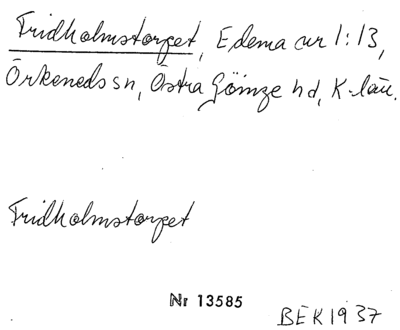 Fridholmstorpet, Edema cur 1:13,
Örkeneds sn, Östra Göinge hd, K-län.
Fridholmstorpet
Nr 13585
BEK 1937